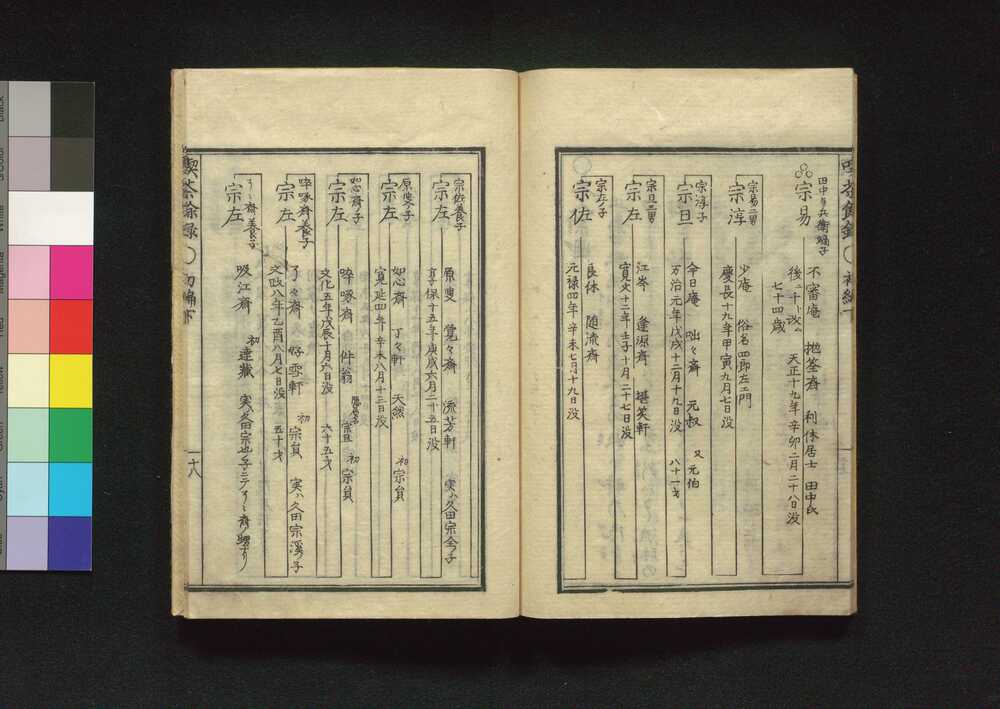 田中与兵衛嫡子
宗易
不審庵　抛筌斎　利休居士　田中氏
後ニ千ト改ム　天正十九年辛卯二月二十八日没
七十四歳
宗易二男
宗淳
少庵　俗名四郎左エ門
慶長十九年甲寅九月七日没
宗淳子
宗旦
今日庵　咄々斎　元叔　又元伯
万治元年戊戌十二月十九日没　八十一才
宗旦二男
宗左
江岑　逢源斎　堪笑軒
寛文十二年壬子十月二十七日没
宗左ノ子
宗佐
良休　随流斎
元禄四年辛未七月十九日没
宗佐養子
宗左
原叟　覚々斎　流芳軒　実ハ久田宗全ノ子
享保十五年庚戌六月二十五日没
原叟子
宗左
如心斎　丁々軒　天然　初宗員
寛延四年辛未八月十三日没
如心斎子
宗左
啐啄斎　件翁　宗旦　初宗員
文化五年戊辰十月六日没　六十五才
啐啄斎養子
宗左
了々斎　好雪軒　初宗員　実ハ久田宗渓ノ子
文政八年乙酉八月七日没　五十才
了々斎養子
宗左
吸江斎　初達蔵　実ハ久田宗也ノ子ニテ了々斎ノ甥ナリ
喫茶餘録　初編下　十八